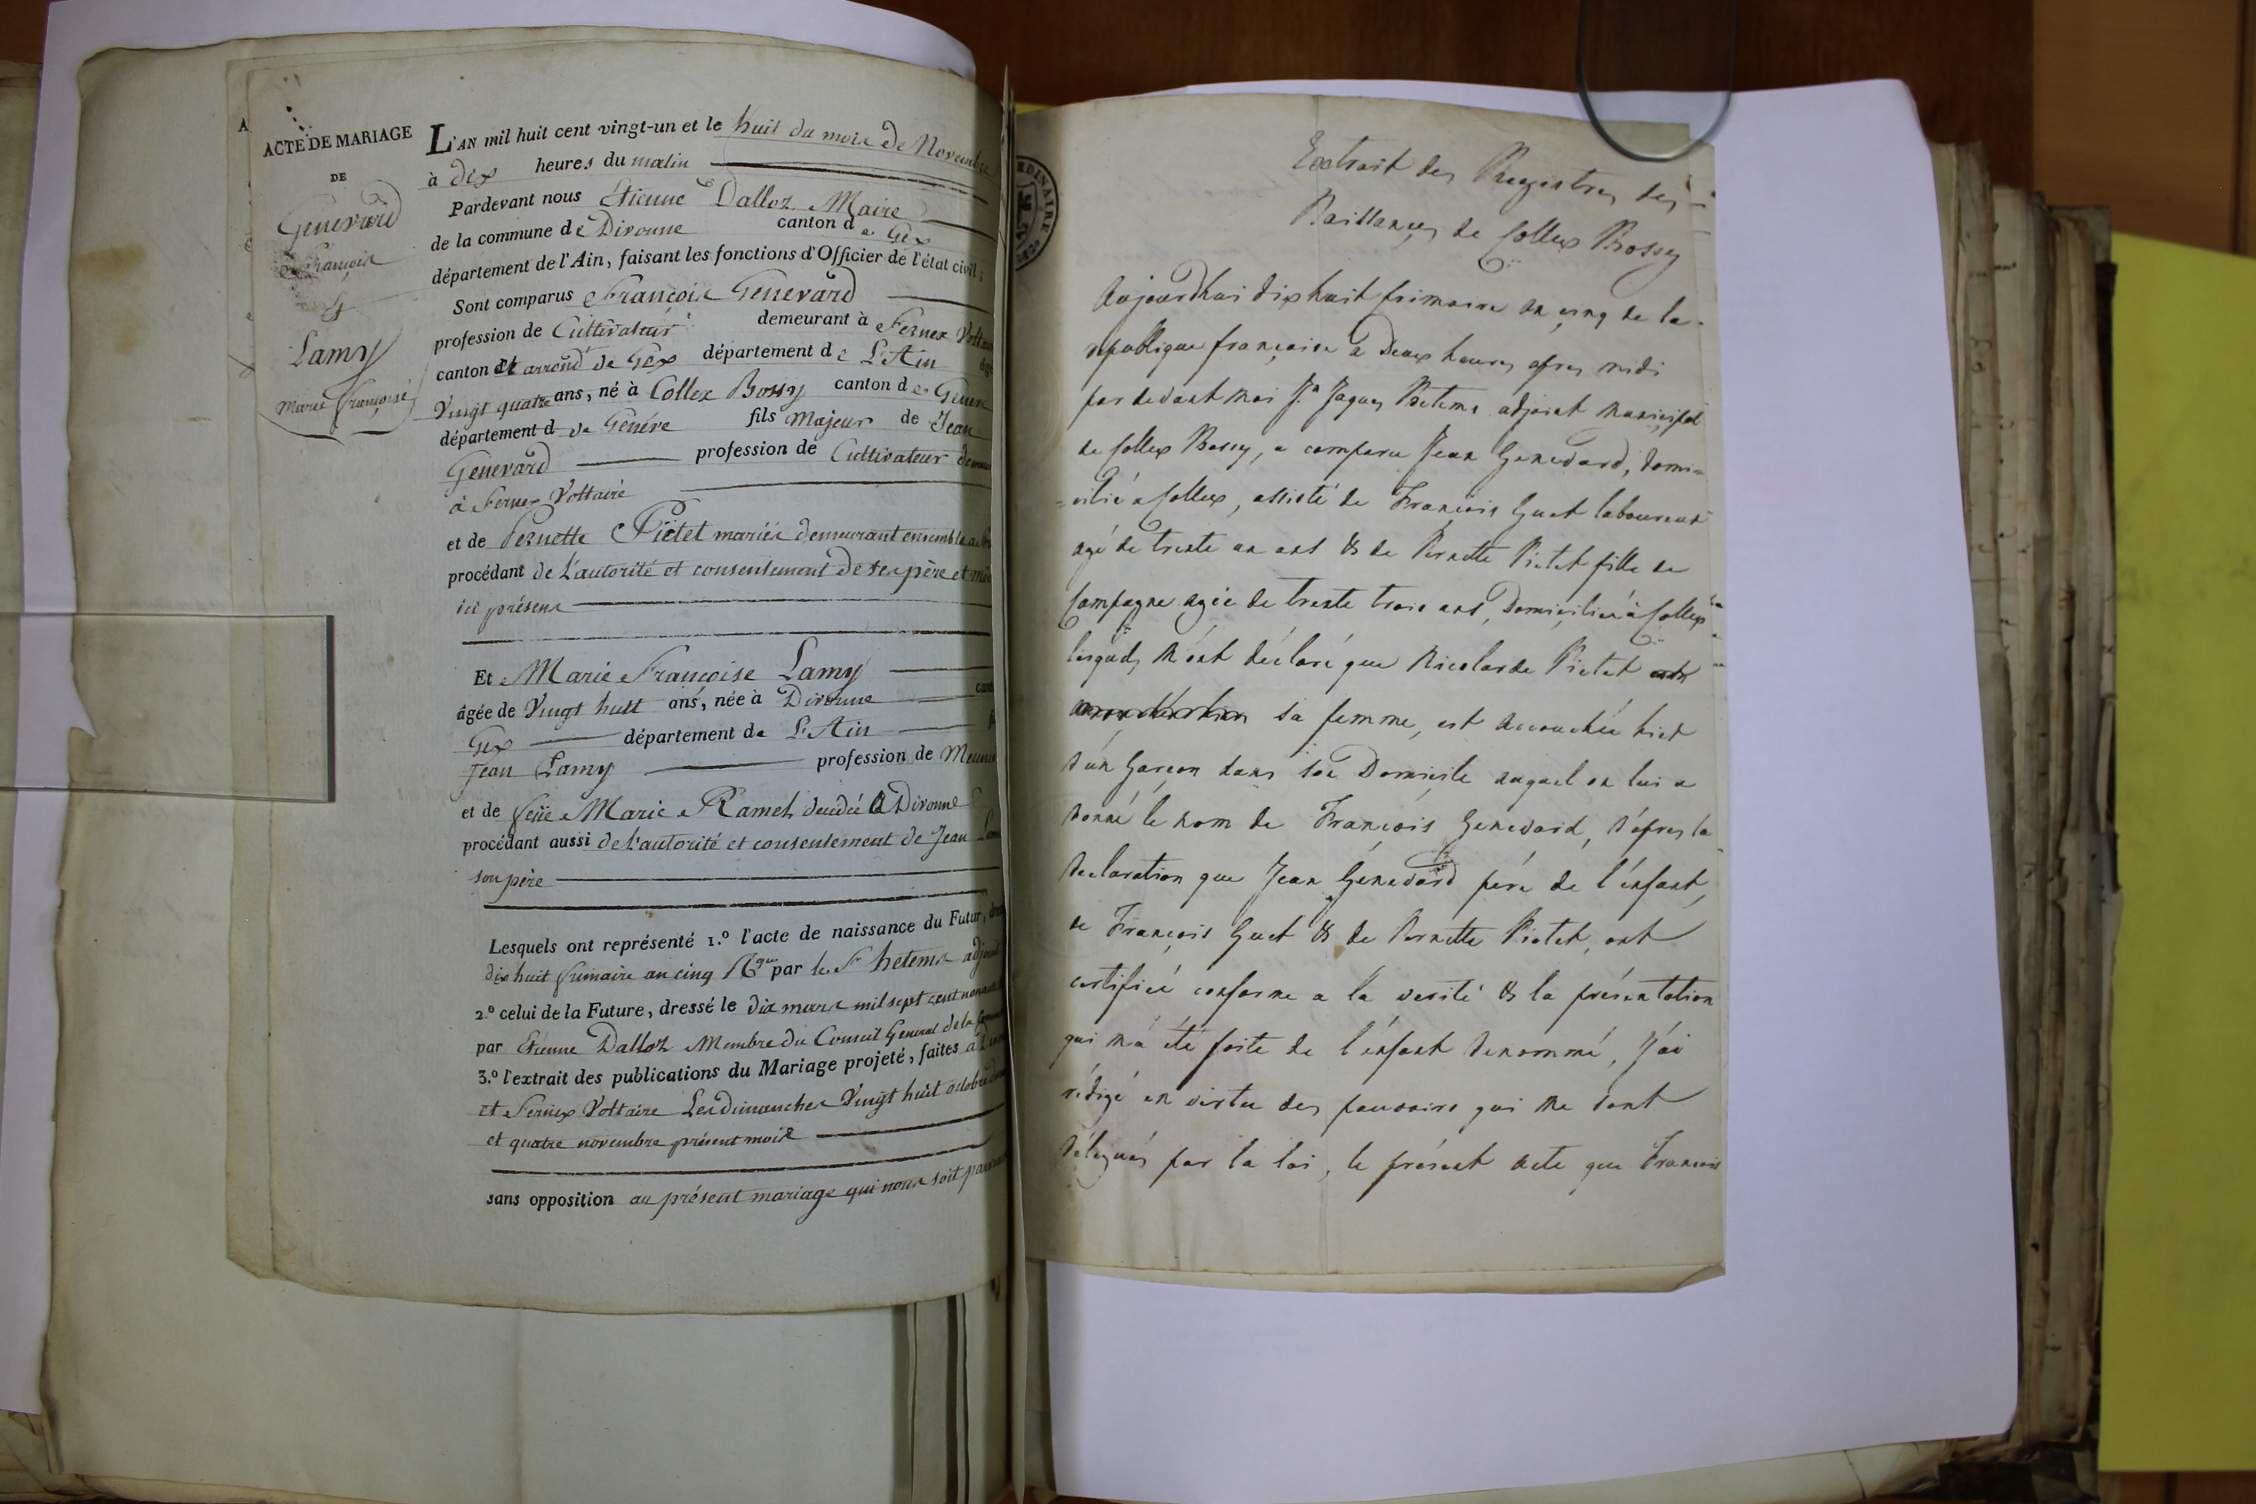 ACTE DE MARIAGE
DE
Genevard
François
&
Lamy
Marie françoise
L'AN mil huit cent vingt-un et le huit du mois de Novembre
à dix heures du matin
Pardevant nous Étienne Dalloz Maire
de la commune de Divonne canton de Gex
département de l'Ain, faisant les fonctions d'Officier de l'état civil;
Sont comparus François Genevard
profession de Cultivateur demeurant à Fernex
canton et arrond.t de Gex département de L'Ain
Vingt quatre ans, né à Collex Bossy canton de Genève
département d de Genève fils Majeur de Jean
Genevard profession de Cultivateur
à Fernex Voltaire
et de Pernette Pictet mariés demeurant ensemble
procédant de L'autorité et consentement de ses père et
ici présens
Et Marie Françoise Lamy
âgée de Vingt huit ans, née à Divonne
Gex département de L'Ain
Jean Lamy profession de
et de feüe Marie Ramel décédée à Divonne
procédant aussi de L'autorité et consentement de Jean
son père
Lesquels ont représenté 1.º l'acte de naissance du Futur,
dix huit frimaire an cinq par le Sr
2.º celui de la Future, dressé le dix mars mil sept cent
par Étienne Dalloz Membre du Conseil Général de la
3.º l'extrait des publications du Mariage projeté, faites à
et Fernex Voltaire Les dimanches Vingt huit octobre
et quatre novembre présent mois
sans opposition au présent mariage qui nous soit
Extrait des Registres des
Naissances de Collex Bossy
Aujourdhui dix huit frimaire an cinq de la
republique française à Deux heures apres midi
par devant moi Jn Jaques Betems adjoint municipal
de Collex Bossy, a comparu Jean Genevard, domi=
=cilié a Collex, assisté de François Guet laboureur
agé de trente un ans & de Pernette Pictet fille de
Campagne agée de trente trois ans, Domiciliée à Collex
lesquels m'ont déclaré que Nicolarde Pictet
sa femme, est accouchée hier
D'un Garçon dans son Domicile auquel on lui a
Donné le nom de François Genevard, D'apres la
Declaration que Jean Génévard père de l'enfant,
de François Guet & de Pernette Pictet, ont
certifié conforme a la verité & la présentation
qui m'a été faite de l'enfant Denommé, j'ai
rédigé en vertu des pouvoirs qui me sont
Délegués par la loi, le présent acte que François